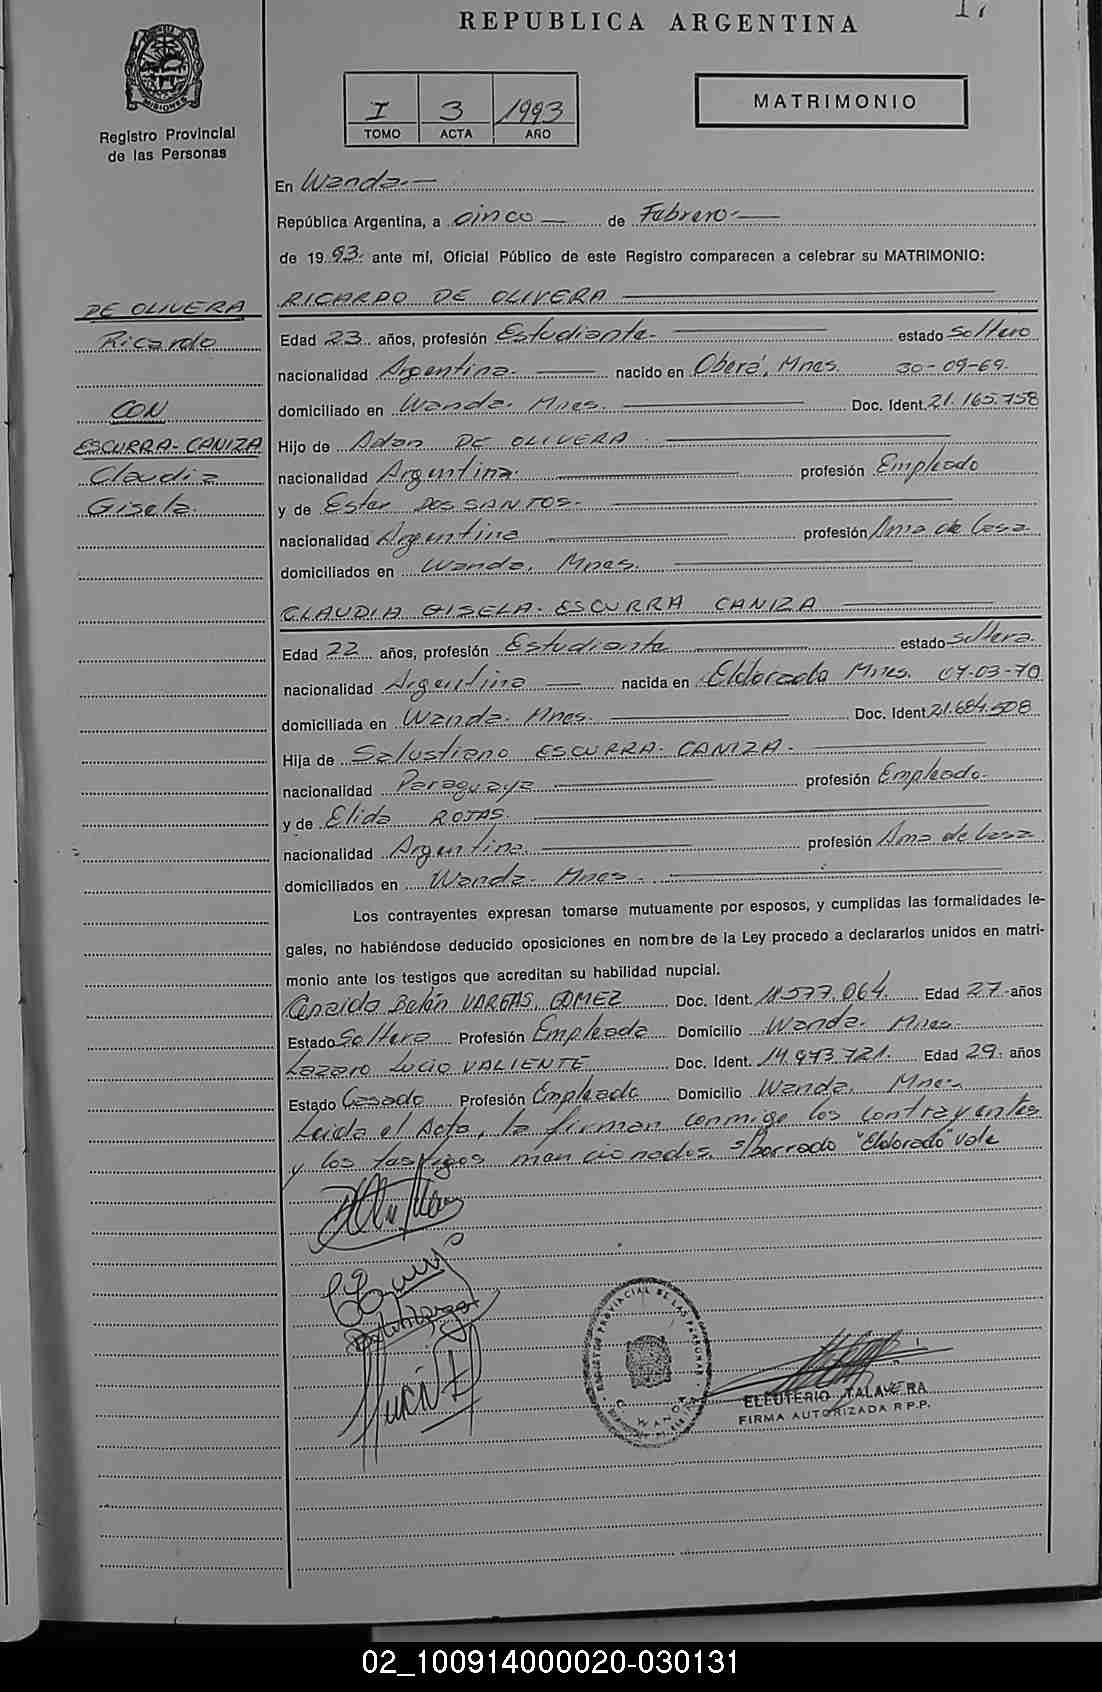 REPUBLICA ARGENTINA
17
MISIONES
Registro Provincial
de las Personas
I 3 1993
TOMO ACTA AÑO
MATRIMONIO
En Wanda.-
República Argentina, a cinco de Febrero.-
de 1993. ante mí, Oficial Público de este Registro comparecen a celebrar su MATRIMONIO:
DE OLIVERA
Ricardo
CON
ESCURRA-CANIZA
Claudia
Gisela.
RICARDO DE OLIVERA
Edad 23 años, profesión Estudiante.- estado soltero
nacionalidad Argentina.- nacido en Oberá, Mnes. 30-09-69.
domiciliado en Wanda. Mnes. Doc. Ident. 21.165.758
Hijo de Adan DE OLIVERA.
nacionalidad Argentina. profesión Empleado
y de Ester DOS SANTOS.-
nacionalidad Argentina profesión Ama de Casa
domiciliados en Wanda, Mnes.
CLAUDIA GISELA. ESCURRA CANIZA
Edad 22 años, profesión Estudiante estado soltera.
nacionalidad Argentina nacida en Eldorado Mnes. 07-03-70
domiciliada en Wanda. Mnes. Doc. Ident. 21.684.508
Hija de Salustiano ESCURRA-CANIZA.-
nacionalidad Paraguaya profesión Empleado.-
y de Elida ROJAS.
nacionalidad Argentina. profesión Ama de Casa
domiciliados en Wanda. Mnes.
Los contrayentes expresan tomarse mutuamente por esposos, y cumplidas las formalidades le-
gales, no habiéndose deducido oposiciones en nombre de la Ley procedo a declararlos unidos en matri-
monio ante los testigos que acreditan su habilidad nupcial.
Belén VARGAS GOMEZ Doc. Ident. 18.577.064. Edad 27 años
Estado Soltera Profesión Empleada Domicilio Wanda. Mnes.
Lazaro Lucio VALIENTE Doc. Ident. 14.973.721. Edad 29. años
Estado Casado Profesión Empleado Domicilio Wanda, Mnes.
Leida el Acta, la firman conmigo los contrayentes
y los testigos mencionados. s/borrado "Eldorado" vale
REGISTRO PROVINCIAL DE LAS PERSONAS
WANDA
ELEUTERIO TALAVERA
FIRMA AUTORIZADA R.P.P.
02_100914000020-030131